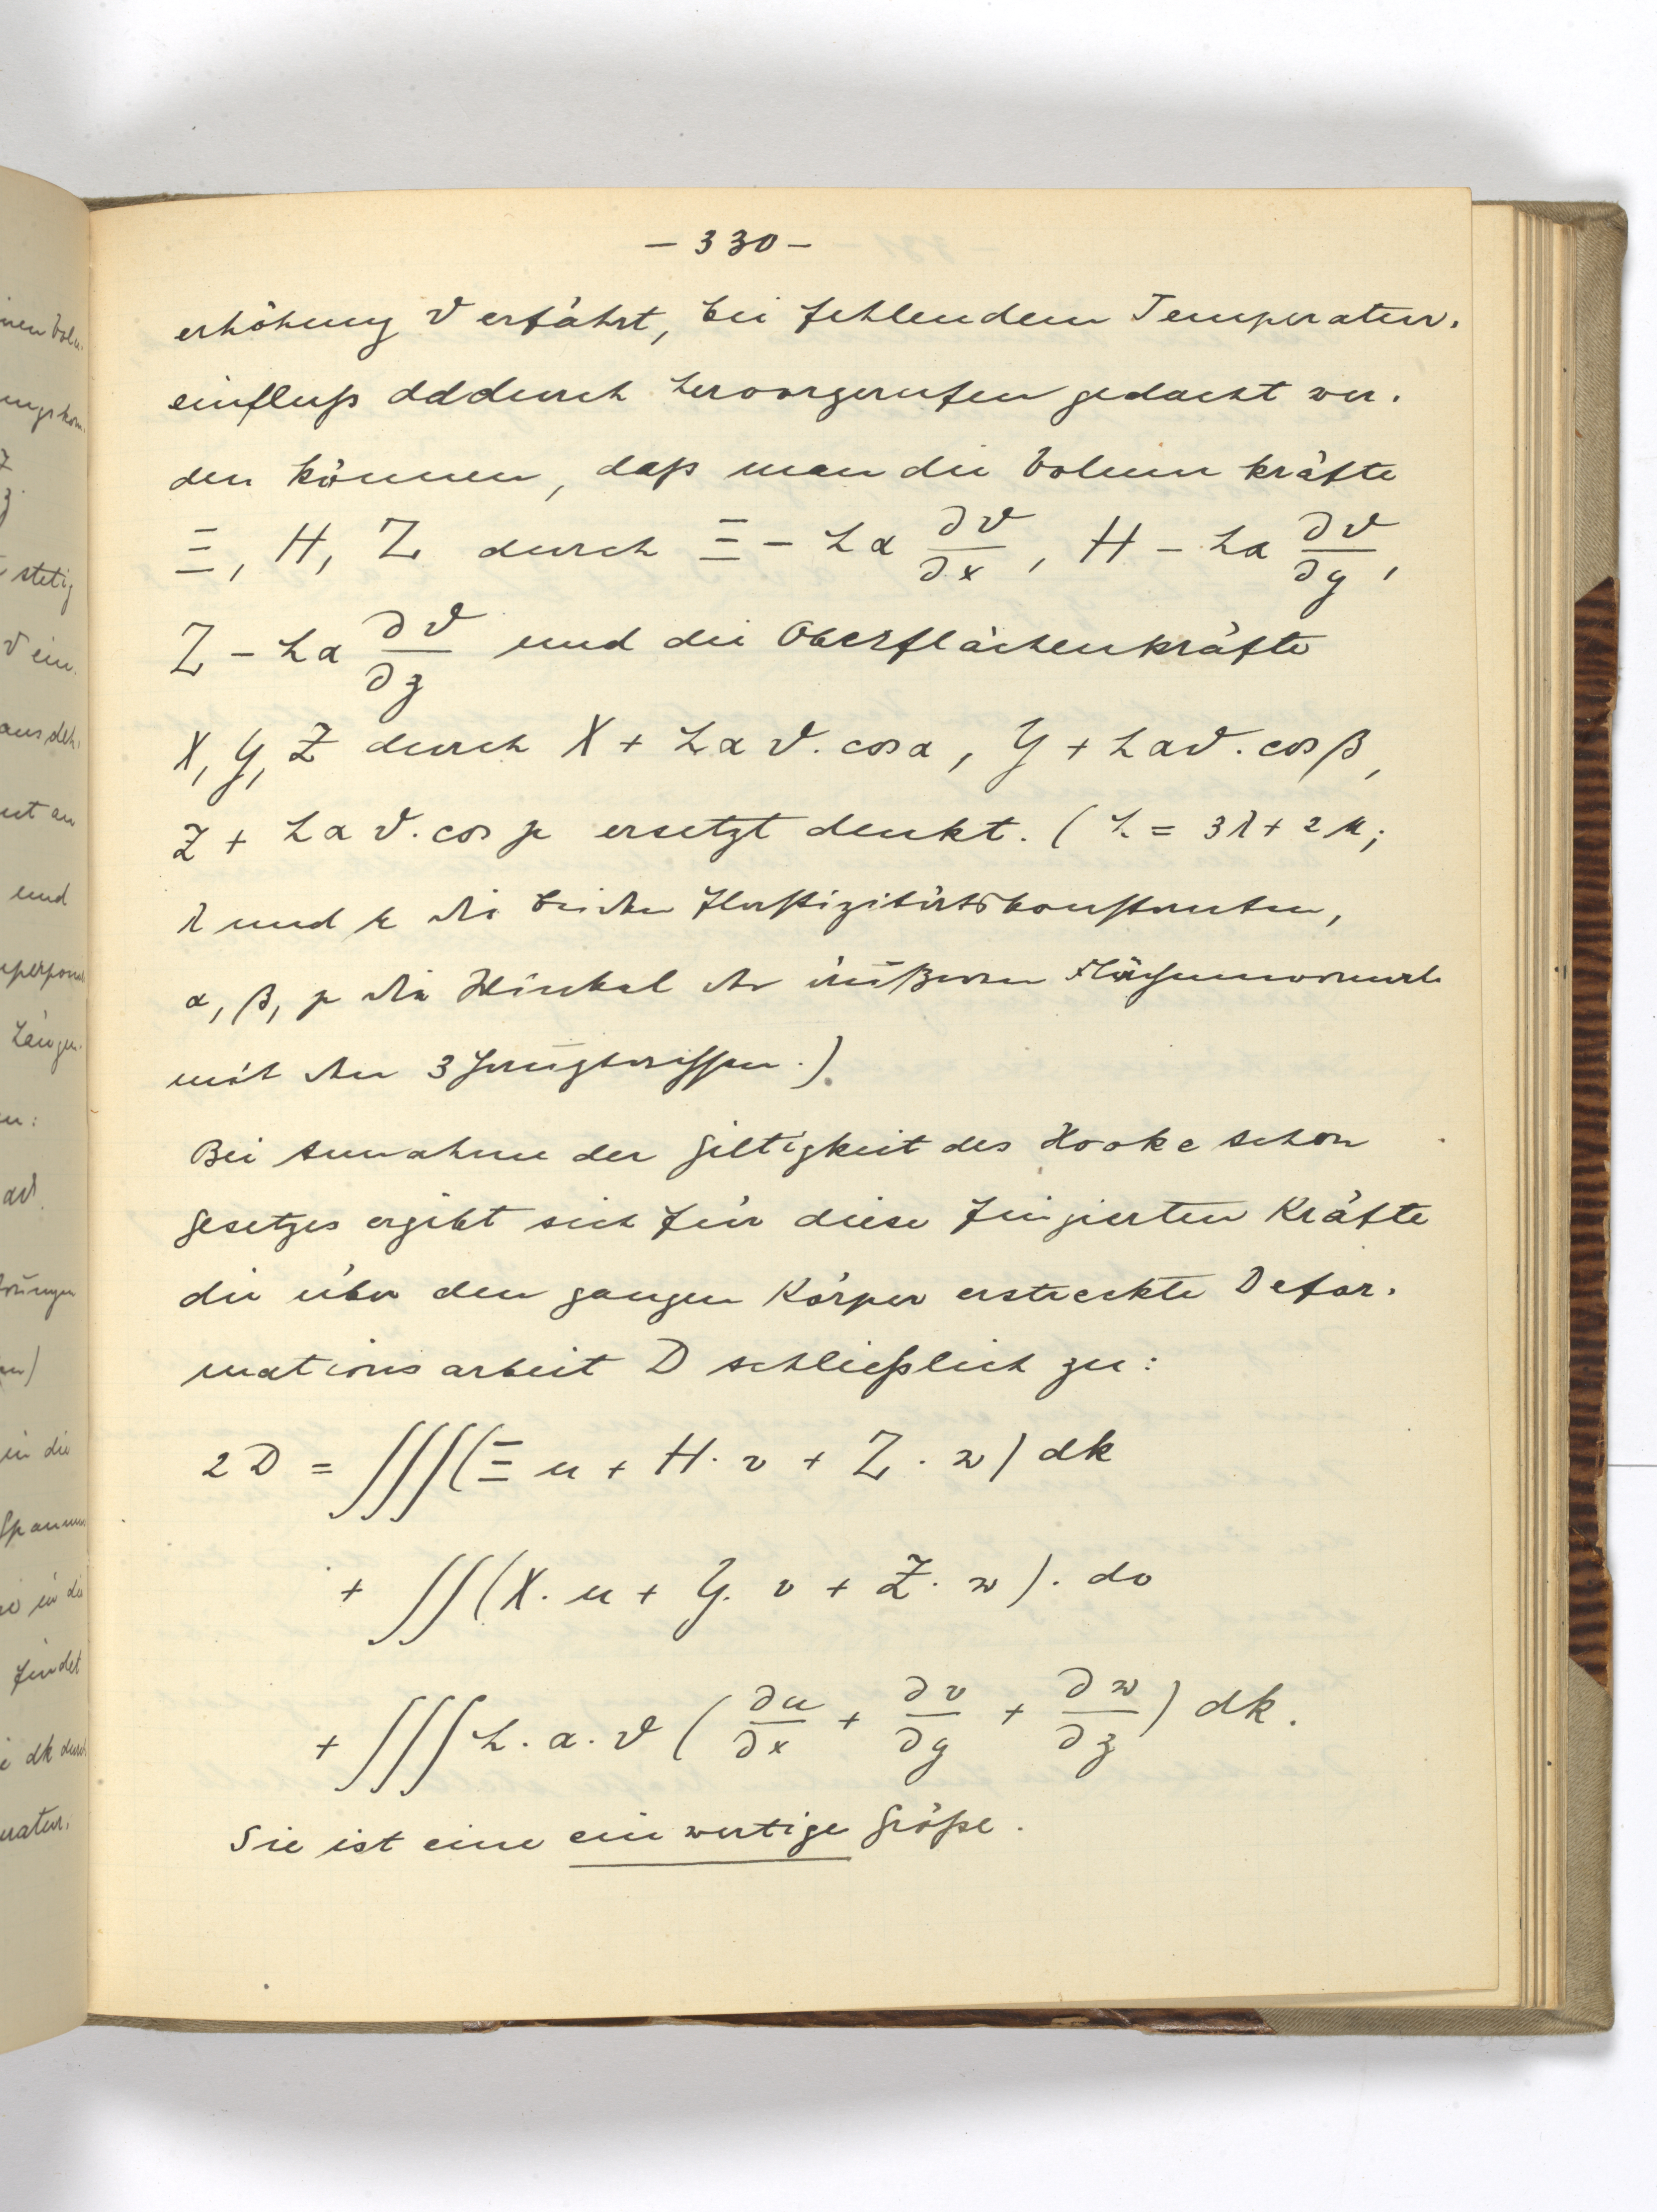 inen Volu-
ungskom-
stetig
ϑ ein-
ausdeh-
ut an
und
uperpon
Länge-
en:
αϑ
in die
Spannun
findet
dk durch
eratur-
- 330 -
erhöhung ϑ erfährt, bei fehlendem Temperatur-
einfluß daddurch hervorgerufen gedacht wer-
den können, daß man die Volumkräfte
Ξ, H, Z durch Ξ - hα ∂ϑ/∂x, H - hα ∂ϑ/∂y,
Z - hα ∂ϑ/∂z und die Oberflächenkräfte
X, Y, Z durch X + hαϑ. cosα, Y + hαϑ. cosβ,
Z + hαϑ. cosγ ersetzt denkt. (h = 3λ + 2μ;
λ und μ die beiden Elastizitätskonstanten,
α, β, γ die Winkel der äußeren Flächennormale
mit den 3 Hauptrissen.)
Bei Annahme der Giltigkeit des Hookeschen
Gesetzes ergibt sich für diese fingierten Kräfte
die über den ganzen Körper erstreckte Defor-
mationsarbeit D schließlich zu:
2D = ∭(Ξ u + H. v + Z. w) dk
+ ∬(X. u + Y. v + Z. w). do
+ ∭ h. α. ϑ (∂u/∂x + ∂v/∂y + ∂w/∂z) dk.
Sie ist eine einwertige Größe.